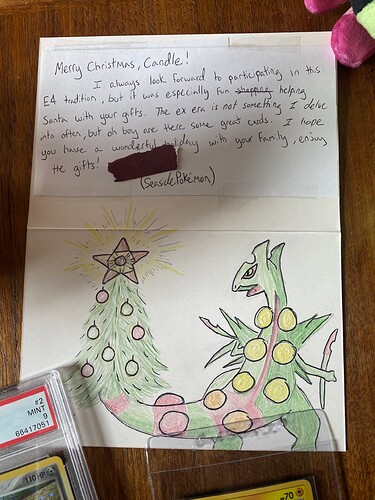 Merry Christmas, Candle!
I always look forward to participating in this
E4 tradition, but it was especially fun shopping helping
Santa with your gifts. The ex era is not something I delve
into often, but oh boy are there some great cards. I hope
you have a wonderful holiday with your family, enjoy
the gifts!
(SeasidePokémon)
#2
MINT
9
66417051
110
#70